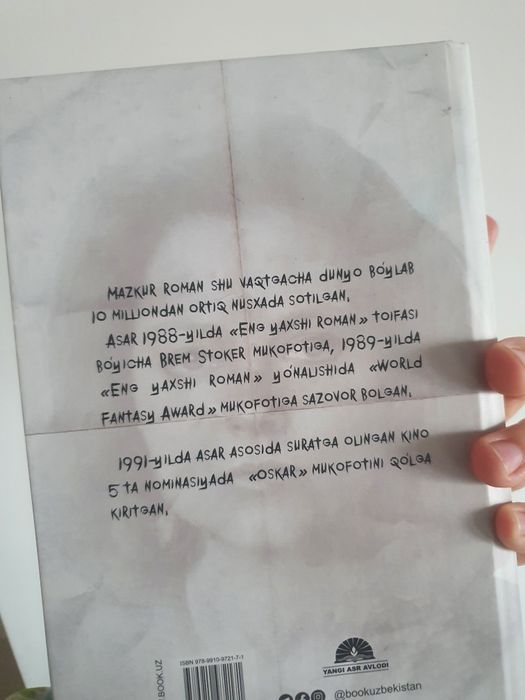 MAZKUR ROMAN SHU VAQTGACHA DUNYO BO'YLAB
10 MILLIONDAN ORTIQ NUSXADA SOTILGAN.
ASAR 1988-YILDA «ENG YAXSHI ROMAN» TOIFASI
BO'YICHA BREM STOKER MUKOFOTIGA, 1989-YILDA
«ENG YAXSHI ROMAN» YO'NALISHIDA «WORLD
FANTASY AWARD» MUKOFOTIGA SAZOVOR BOLGAN.
1991-YILDA ASAR ASOSIDA SURATGA OLINGAN KINO
5 TA NOMINASIYADA «OSKAR» MUKOFOTINI QO'LGA
KIRITGAN.
BOOK.UZ
ISBN 978-9910-9721-7-1
YANGI ASR AVLODI
@bookuzbekistan